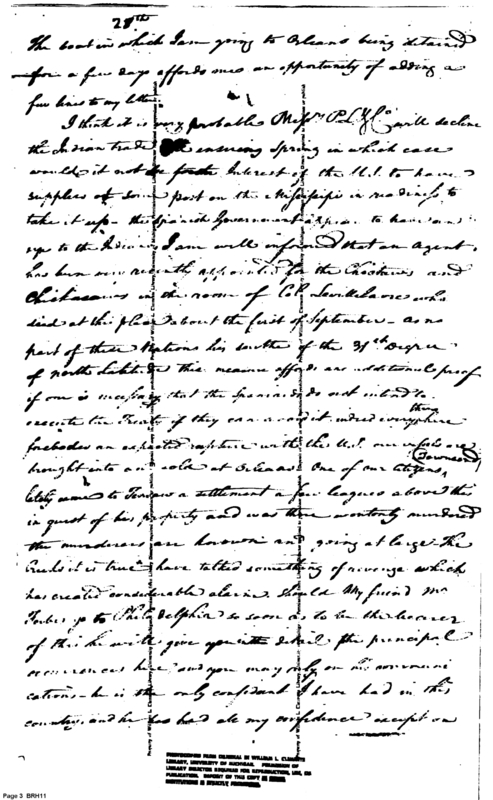 28th
The boat in which I am going to Orleans being detained
for a few days affords me an opportunity of adding a
few lines to my letter.
I think it is very probable Messrs P L & Co will decline
the Indian trade ensuing Spring in which case
would it not be Interest of the U.S. to have
supplies at some post on the Mississipi in readiness to
take it up – the Spanish Government appear to have an
eye to the Indians I am well informed that an agent
has been very recently appointed for the Choctaws and
Chickasaws in the room of Col. who
died at this place about the first of September – as no
part of these Nations lies south of the 31st Degree
of North Latitude this measure affords an additional proof
if one is necessary that the Spaniards do not intend to
execute the Treaty if they can avoid it indeed every thing here
forebodes an expected rupture with the U.S. our vessels are
brought into and sold at Orleans. One of our Citizens, Townsend
lately came to Tensaw a settlement a few leagues above this
in quest of his property and was there wantonly murdered
the murderers are known and going at large. The
Creeks it is true have talked something of revenge which
has created considerable alarm. Should My friend Mr
Forbes go to Philadelphia so soon as to be the bearer
of this he will give you in detail the principal
occurrences here and you may rely on his communi
cations – he is the only confidant I have had in this
country, and he has had all my confidence except on
PHOTOCOPIED FROM ORIGINAL IN WILLIAM L. CLEMENTS
LIBRARY, UNIVERSITY OF MICHIGAN. PERMISSION OF
LIBRARY DIRECTOR REQUIRED FOR REPRODUCTION, USE, OR
PUBLICATION. DEPOSIT OF THIS COPY IN OTHER
INSTITUTIONS IS STRICTLY FORBIDDEN.
Page 3 BRH11